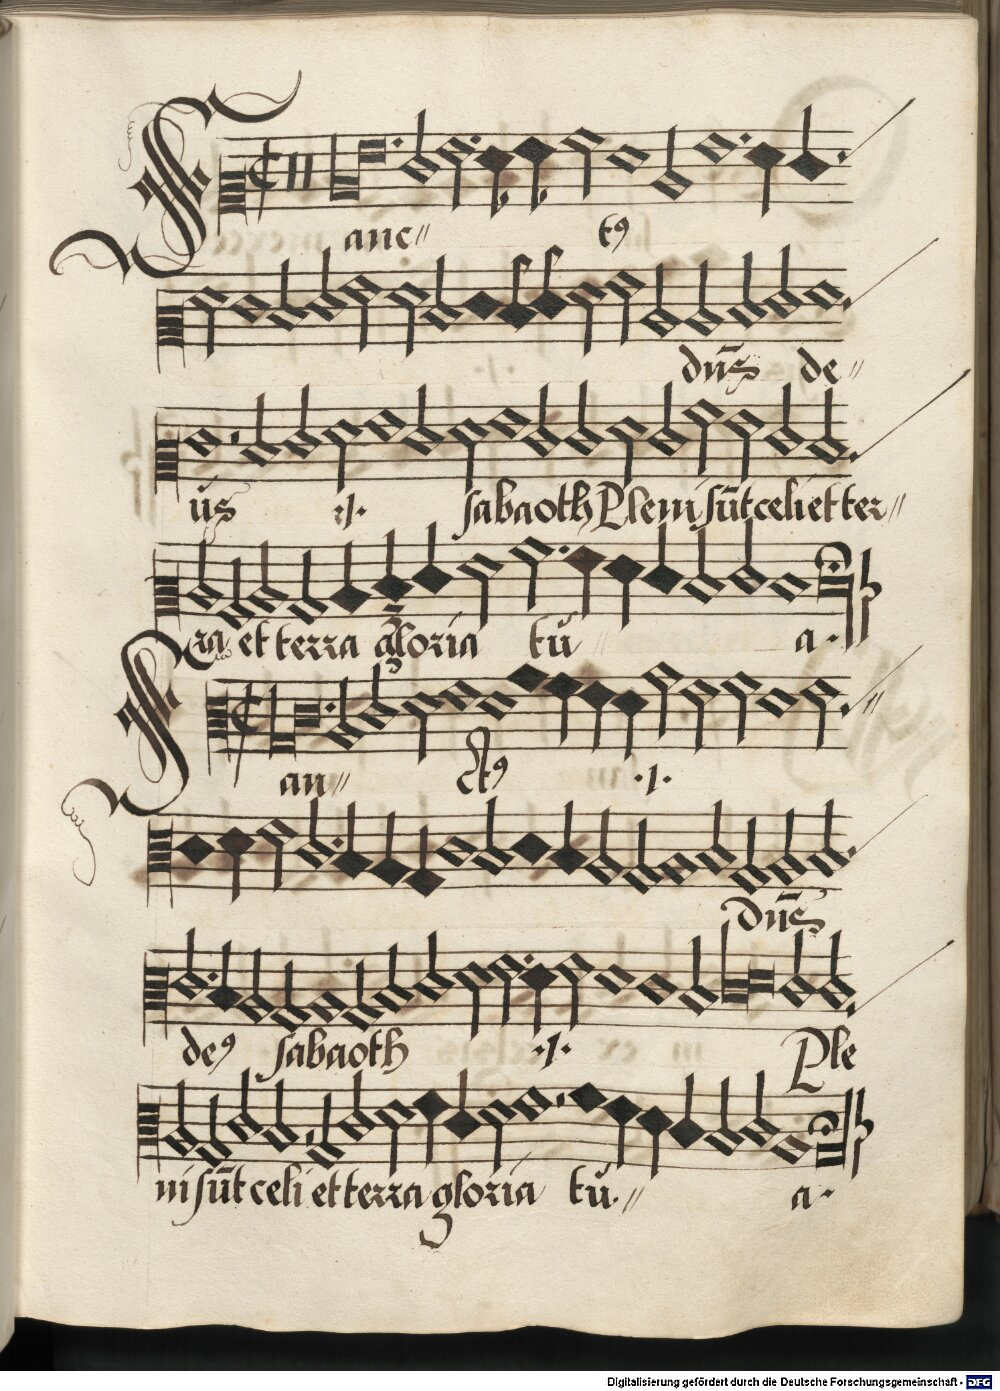 Sanc〃 tꝰ
dn̄s de〃
us ·I· sabaoth Pleni sūt celi et ter〃
ra et terra gloria tu〃 a·
San〃 ctꝰ ·I·
dn̄s
deꝰ sabaoth ·I· Ple
ni sūt celi et terra gloria tu·〃 a·
Digitalisierung gefördert durch die Deutsche Forschungsgemeinschaft - DFG